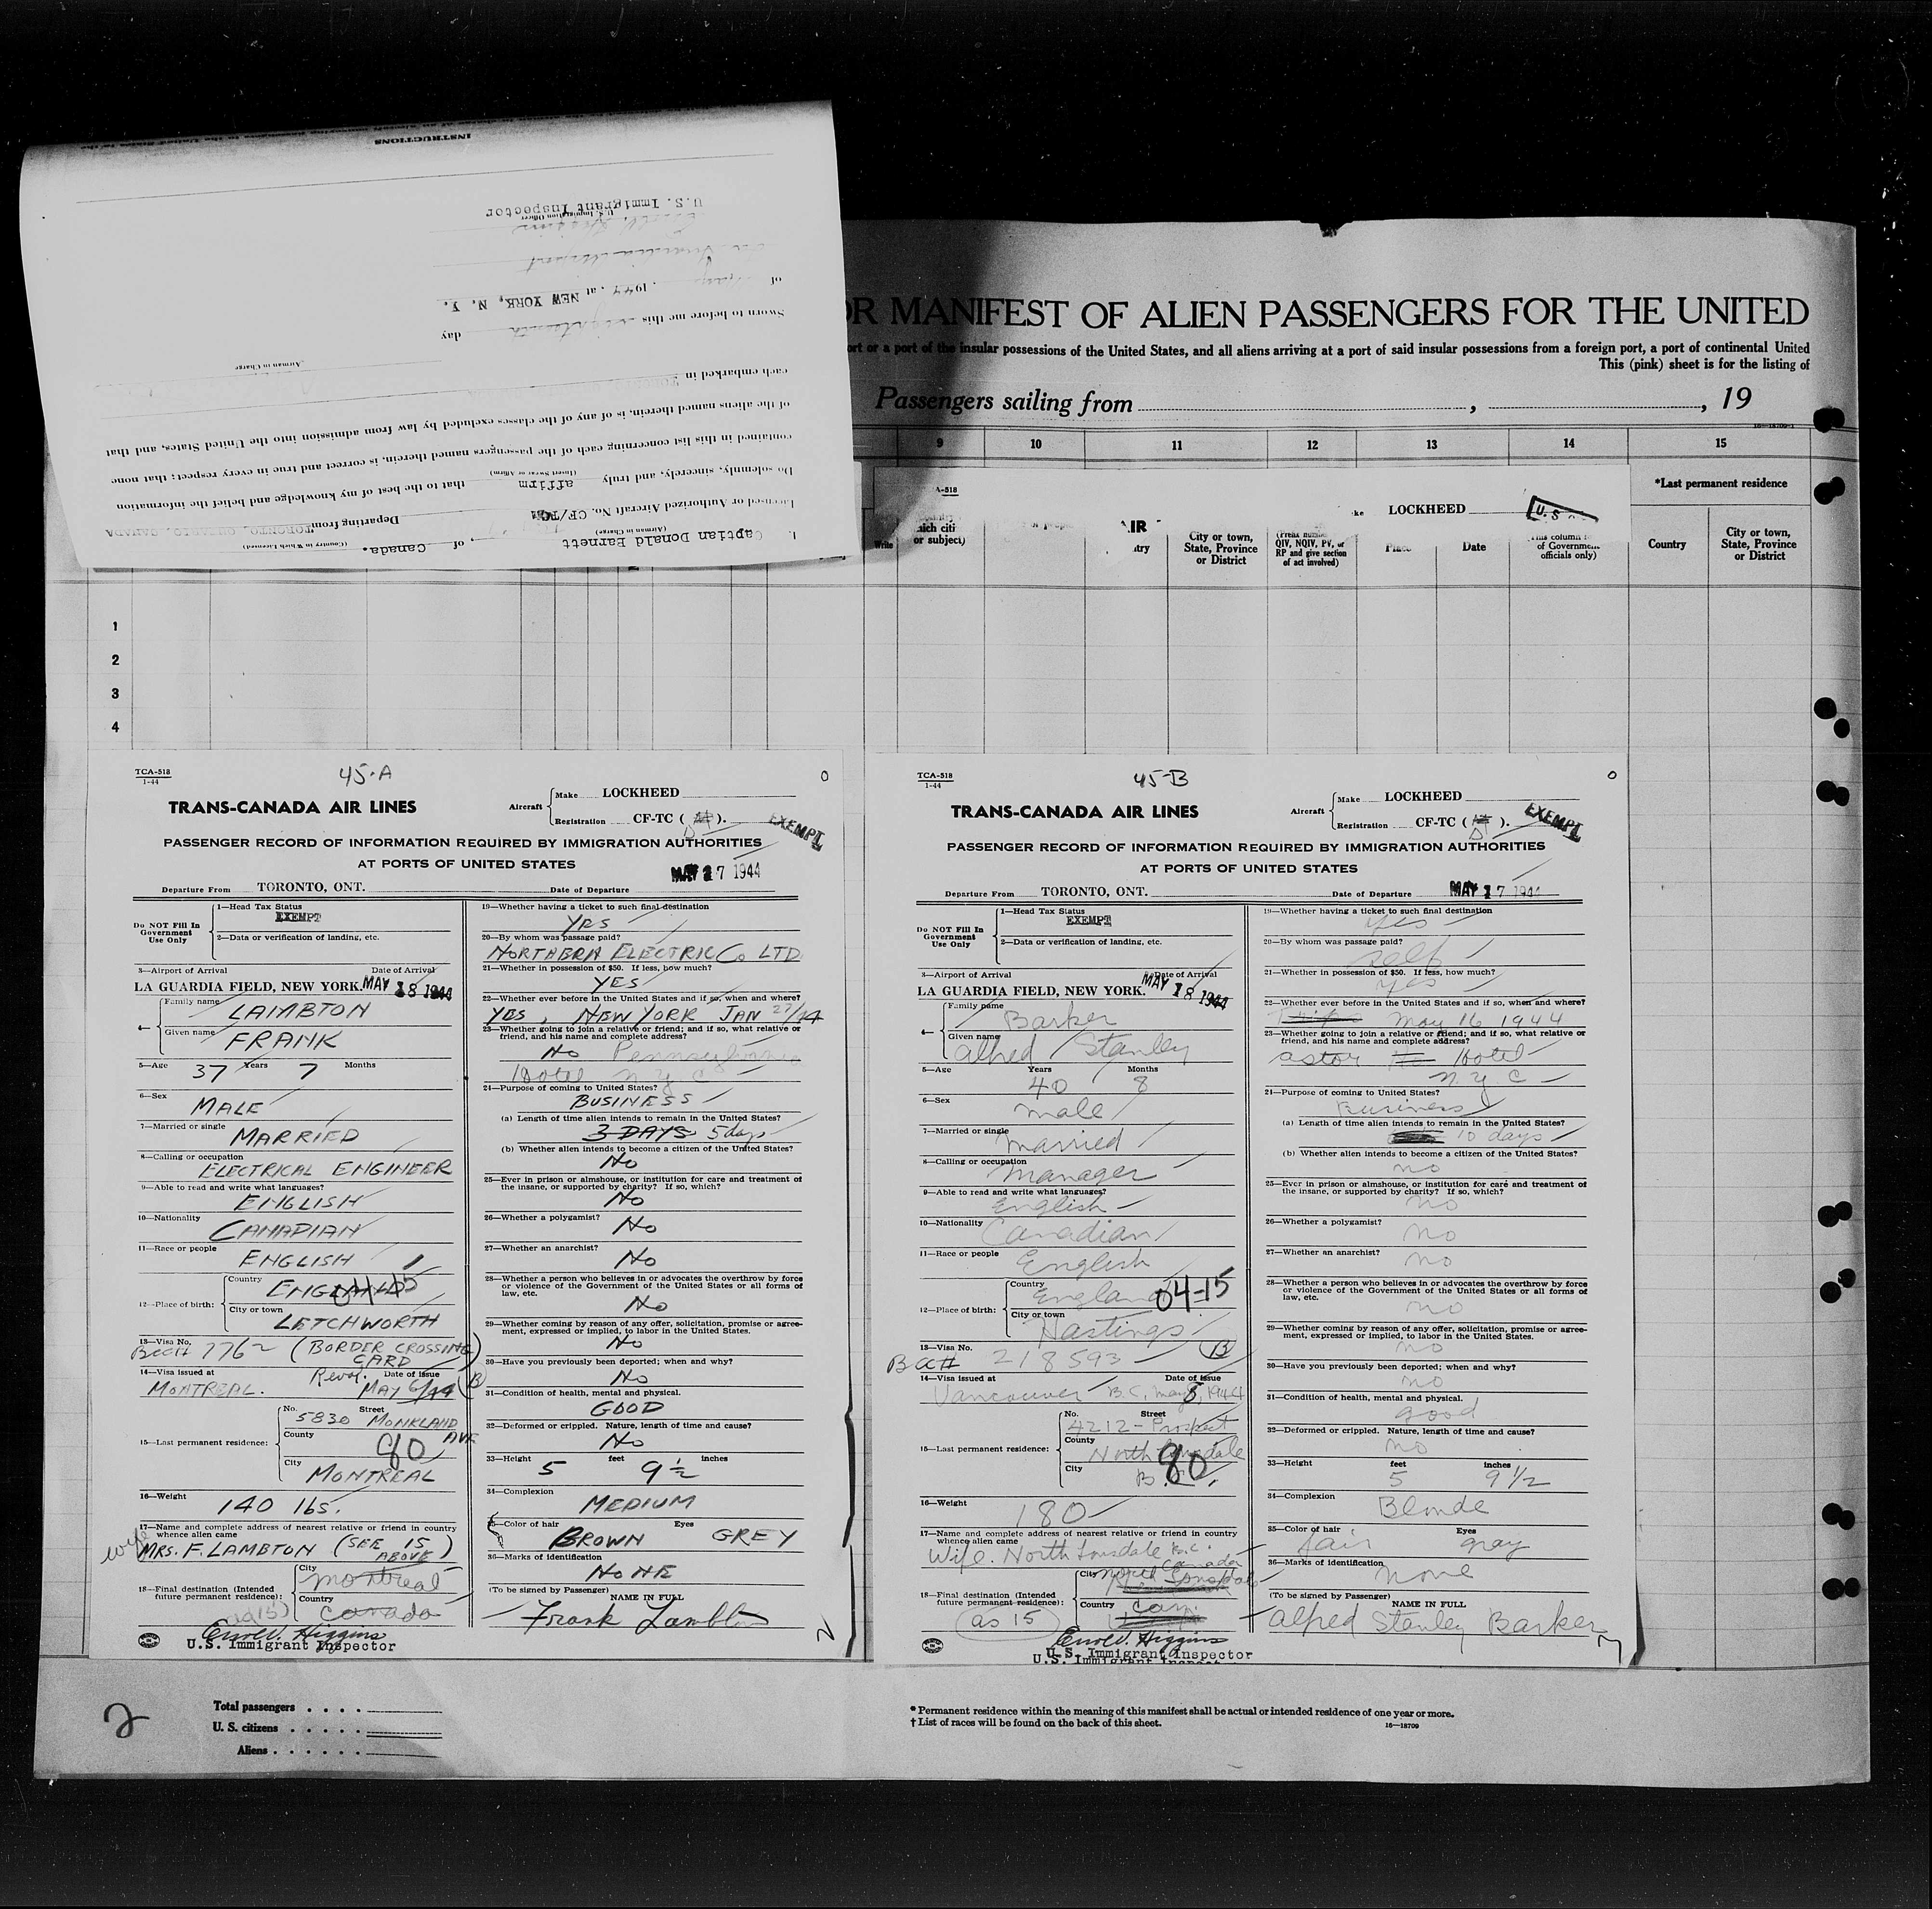 INSTRUCTIONS
U.S. Immigrant Inspector
U.S. Immigration Officer
of , 1944, at NEW YORK, N. Y.
Sworn to before me this day
Airman in Charge
each embarked in
of the aliens named therein, is of any of the classes excluded by law from admission into the United States, and that
contained in this list concerning each of the passengers named therein, is correct and true in every respect; that none
Do solemnly, sincerely, and truly affirm that to the best of my knowledge and belief the information
(Insert Swear or Affirm)
Licensed or Authorized Aircraft No. CF/TC Departing from TORONTO, ONTARIO, CANADA
(Airman in Charge) (Country in Which Licensed)
I, Captian Donald Barnett , of Canada.
OR MANIFEST OF ALIEN PASSENGERS FOR THE UNITED
ort or a part of the insular possessions of the United States, and all aliens arriving at a port of said insular possessions from a foreign port, a port of continental United
This (pink) sheet is for the listing of
Passengers sailing from , , 19
9 10 11 12 13 14 15
A-518
LOCKHEED
U.S.
*Last permanent residence
Write
or subject)
AIR
City or town, State, Province or District
QIV, NQIV, PV, or RP and give section of act involved)
Place
Date
of Government officials only)
Country
City or town, State, Province or District
1
2
3
4
TCA-518
1-44
45-A
TRANS-CANADA AIR LINES
Aircraft
Make LOCKHEED
Registration CF-TC ( ).
D
EXEMPT
PASSENGER RECORD OF INFORMATION REQUIRED BY IMMIGRATION AUTHORITIES
AT PORTS OF UNITED STATES
MAY 17 1944
Departure From TORONTO, ONT. Date of Departure
Do NOT Fill In Government Use Only
1—Head Tax Status
EXEMPT
2—Data or verification of landing, etc.
3—Airport of Arrival Date of Arrival
LA GUARDIA FIELD, NEW YORK. MAY 18 1944
4—
Family name
LAMBTON
Given name
FRANK
5—Age 37 Years 7 Months
6—Sex
MALE
7—Married or single
MARRIED
8—Calling or occupation
ELECTRICAL ENGINEER
9—Able to read and write what languages?
ENGLISH
10—Nationality
CANADIAN
11—Race or people
ENGLISH
12—Place of birth:
Country
ENGLAND
City or town
LETCHWORTH
13—Visa No.
7762 (BORDER CROSSING CARD)
14—Visa issued at Date of issue
MONTREAL. MAY 6/44 (B)
15—Last permanent residence:
No. Street
5830 MONKLAND AVE
County
90
City
MONTREAL
16—Weight
140 lbs.
17—Name and complete address of nearest relative or friend in country whence alien came
wife MRS. F. LAMBTON (SEE 15 ABOVE)
18—Final destination (Intended future permanent residence):
City
Montreal
Country
Canada
Errol V. Higgins
U.S. Immigrant Inspector
19—Whether having a ticket to such final destination
YES
20—By whom was passage paid?
NORTHERN ELECTRIC Co LTD
21—Whether in possession of $50. If less, how much?
YES
22—Whether ever before in the United States and if so, when and where?
YES, NEW YORK JAN 27/44
23—Whether going to join a relative or friend; and if so, what relative or friend, and his name and complete address?
No Pennsylvania
Hotel N.Y.C
24—Purpose of coming to United States?
BUSINESS
(a) Length of time alien intends to remain in the United States?
3 DAYS 5 days
(b) Whether alien intends to become a citizen of the United States?
No
25—Ever in prison or almshouse, or institution for care and treatment of the insane, or supported by charity? If so, which?
No
26—Whether a polygamist?
No
27—Whether an anarchist?
No
28—Whether a person who believes in or advocates the overthrow by force or violence of the Government of the United States or all forms of law, etc.
No
29—Whether coming by reason of any offer, solicitation, promise or agreement, expressed or implied, to labor in the United States.
No
30—Have you previously been deported; when and why?
No
31—Condition of health, mental and physical.
GOOD
32—Deformed or crippled. Nature, length of time and cause?
No
33—Height 5 feet 9 1/2 inches
34—Complexion
MEDIUM
35—Color of hair Eyes
BROWN GREY
36—Marks of identification
NONE
(To be signed by Passenger) NAME IN FULL
Frank Lambton
TCA-518
1-44
45-B
TRANS-CANADA AIR LINES
Aircraft
Make LOCKHEED
Registration CF-TC ( ).
D
EXEMPT
PASSENGER RECORD OF INFORMATION REQUIRED BY IMMIGRATION AUTHORITIES
AT PORTS OF UNITED STATES
Departure From TORONTO, ONT. Date of Departure MAY 17 1944
Do NOT Fill In Government Use Only
1—Head Tax Status
EXEMPT
2—Data or verification of landing, etc.
3—Airport of Arrival Date of Arrival
LA GUARDIA FIELD, NEW YORK. MAY 18 1944
4—
Family name
Barker
Given name
Alfred Stanley
5—Age Years Months
40 8
6—Sex
Male
7—Married or single
Married
8—Calling or occupation
Manager
9—Able to read and write what languages?
English
10—Nationality
Canadian
11—Race or people
English
12—Place of birth:
Country
England 04-15
City or town
Hastings
13—Visa No. (B)
218593
14—Visa issued at Date of issue
Vancouver B.C. May 8, 1944
15—Last permanent residence:
No. Street
4212 - Prospect
County
North Lonsdale
City
B.C. 90
16—Weight
180
17—Name and complete address of nearest relative or friend in country whence alien came
Wife. North Lonsdale B.C. Canada
18—Final destination (Intended future permanent residence):
City North Lonsdale
Country Can.
(as 15)
Errol V. Higgins
U.S. Immigrant Inspector
U.S. Immigrant Inspector
19—Whether having a ticket to such final destination
Yes
20—By whom was passage paid?
Self
21—Whether in possession of $50. If less, how much?
yes
22—Whether ever before in the United States and if so, when and where?
May 16 1944
23—Whether going to join a relative or friend; and if so, what relative or friend, and his name and complete address?
Astor Hotel
N.Y.C
24—Purpose of coming to United States?
Business
(a) Length of time alien intends to remain in the United States?
10 days
(b) Whether alien intends to become a citizen of the United States?
no
25—Ever in prison or almshouse, or institution for care and treatment of the insane, or supported by charity? If so, which?
No
26—Whether a polygamist?
No
27—Whether an anarchist?
no
28—Whether a person who believes in or advocates the overthrow by force or violence of the Government of the United States or all forms of law, etc.
no
29—Whether coming by reason of any offer, solicitation, promise or agreement, expressed or implied, to labor in the United States.
no
30—Have you previously been deported; when and why?
no
31—Condition of health, mental and physical.
good
32—Deformed or crippled. Nature, length of time and cause?
no
33—Height feet inches
5 9 1/2
34—Complexion
Blonde
35—Color of hair Eyes
fair gray
36—Marks of identification
none
(To be signed by Passenger) NAME IN FULL
Alfred Stanley Barker
2
Total passengers . . . .
U. S. citizens . . . . .
Aliens . . . . . .
* Permanent residence within the meaning of this manifest shall be actual or intended residence of one year or more.
† List of races will be found on the back of this sheet.
16—18709